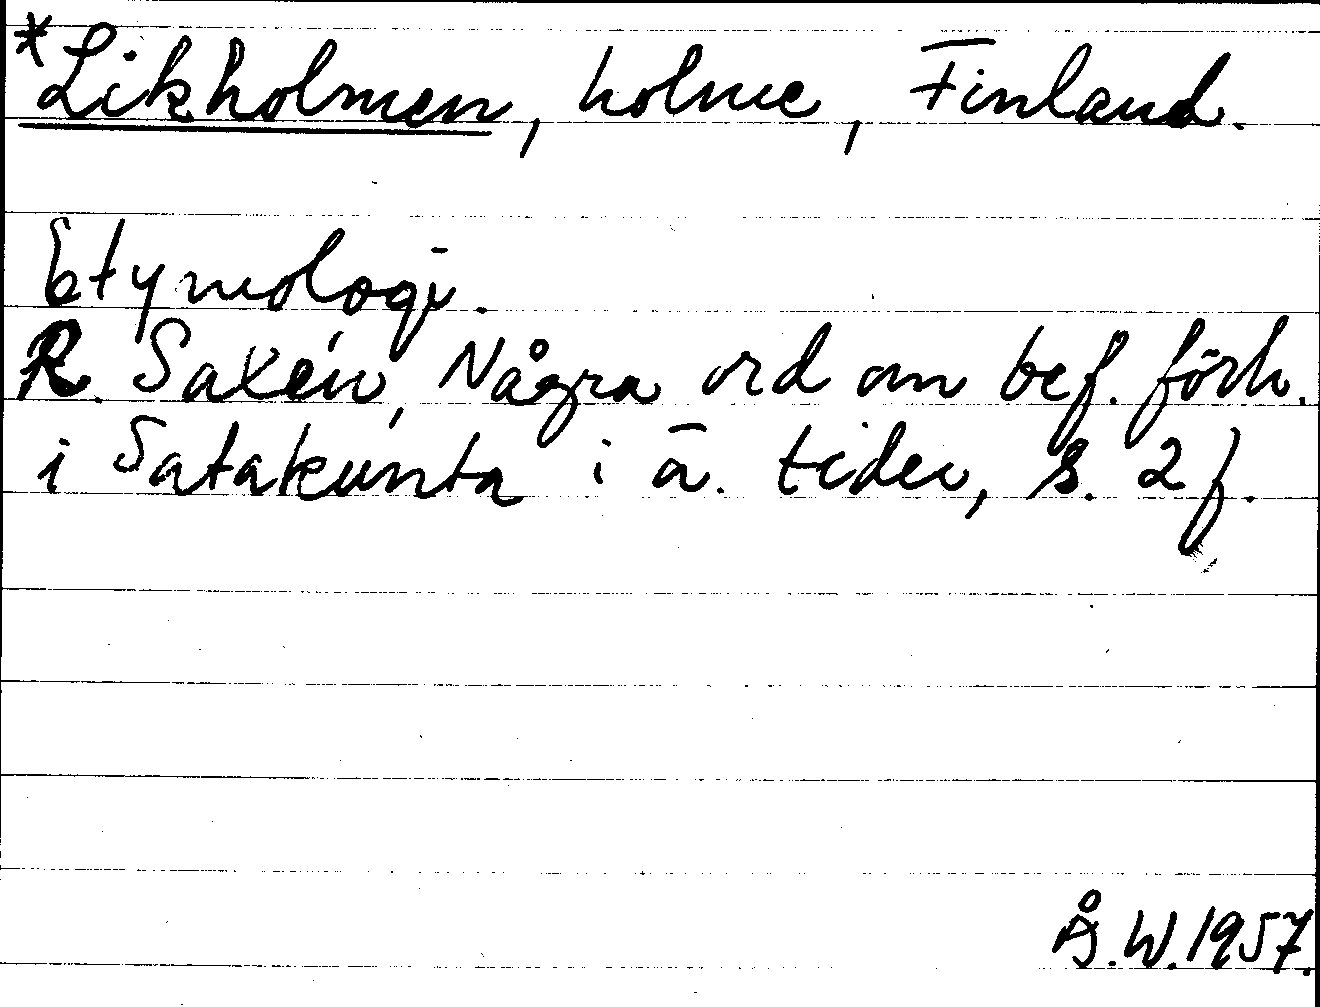 *Likholmen, holme, Finland.
Etymologi.
R. Saxén, Några ord om bef. förh.
i Satakunta i ä. tider, s. 2 f.
Å.W. 1957.